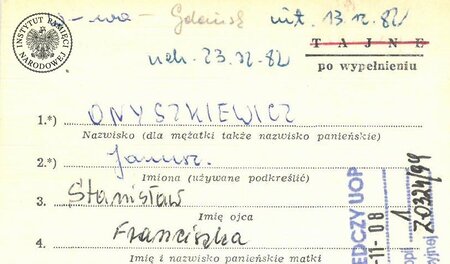 Gdańsk int. 13.12.82
INSTYTUT PAMIĘCI NARODOWEJ
uch. 23.12.82
TAJNE
po wypełnieniu
1.*) ONYSZKIEWICZ
Nazwisko (dla mężatki także nazwisko panieńskie)
2.*) Janusz.
Imiona (używane podkreślić)
3 Stanisław
Imię ojca
4. Franciszka
Imię i nazwisko panieńskie matki
EDCZY UOP
-11-08
1
Z0324/94